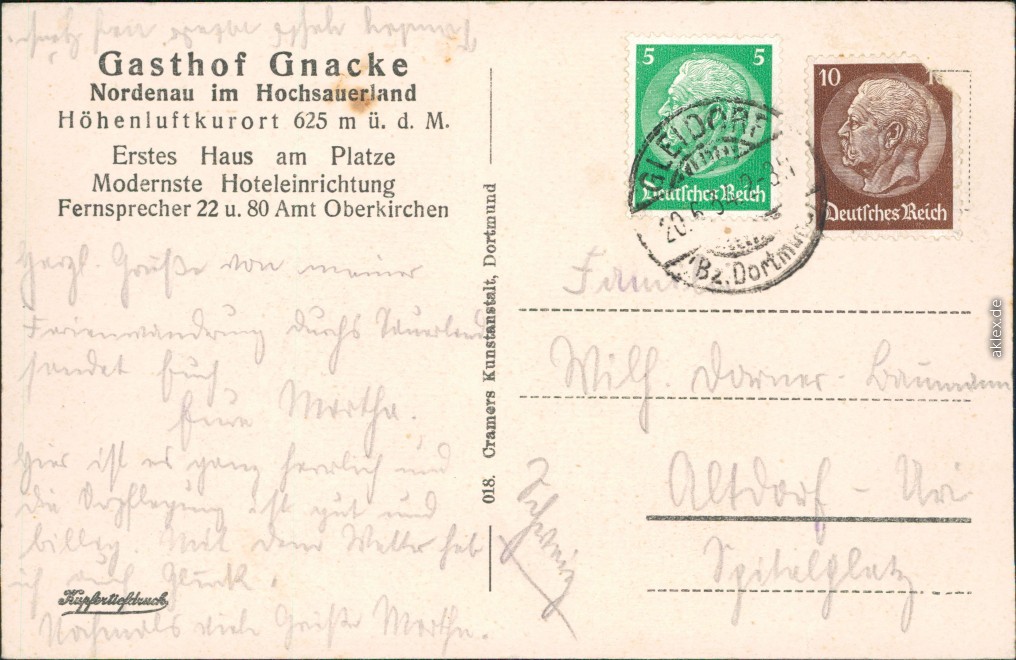 Gasthof Gnacke
Nordenau im Hochsauerland
Höhenluftkurort 625 m ü. d. M.
Erstes Haus am Platze
Modernste Hoteleinrichtung
Fernsprecher 22 u. 80 Amt Oberkirchen
Herzl. Grüße von meiner
Ferienwandrung durchs Sauerland
sendet Euch
Eure Martha.
Hier ist es ganz herrlich und
die Verpflegung ist gut und
billig. Mit dem Wetter hab
ich auch Glück.
Nochmals viele Grüße Martha.
Kupfertiefdruck
018. Cramers Kunstanstalt, Dortmund
5 5
Deutsches Reich
10
Deutsches Reich
GLEIDORF
20.6.
(Bz. Dortmund)
Wilh. Dorner-Baumann
Altdorf - Uri
Spitalplatz
Schweiz
aklex.de